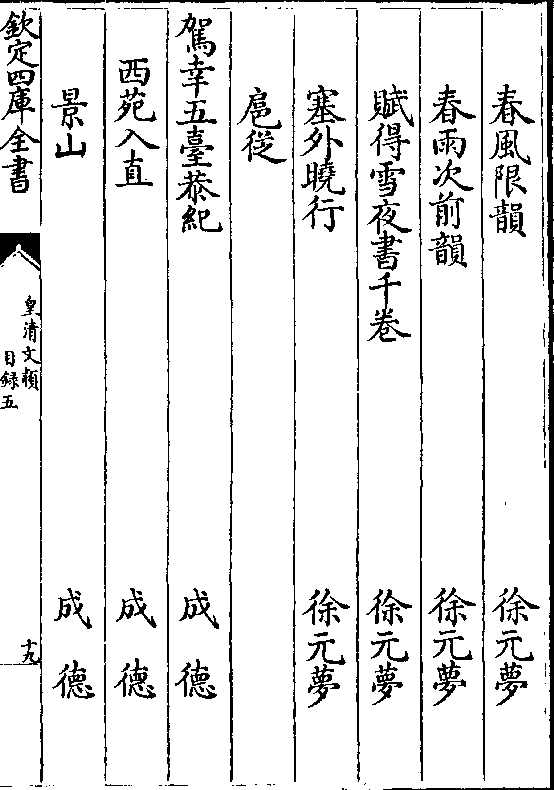 春風限韻 徐元夢
春雨次前韻 徐元夢
賦得雪夜書千巻 徐元夢
塞外曉行 徐元夢
扈從
駕幸五臺恭紀 成德
西苑入直 成德
景山 成德
欽定四庫全書
皇清文穎
目録五
十九